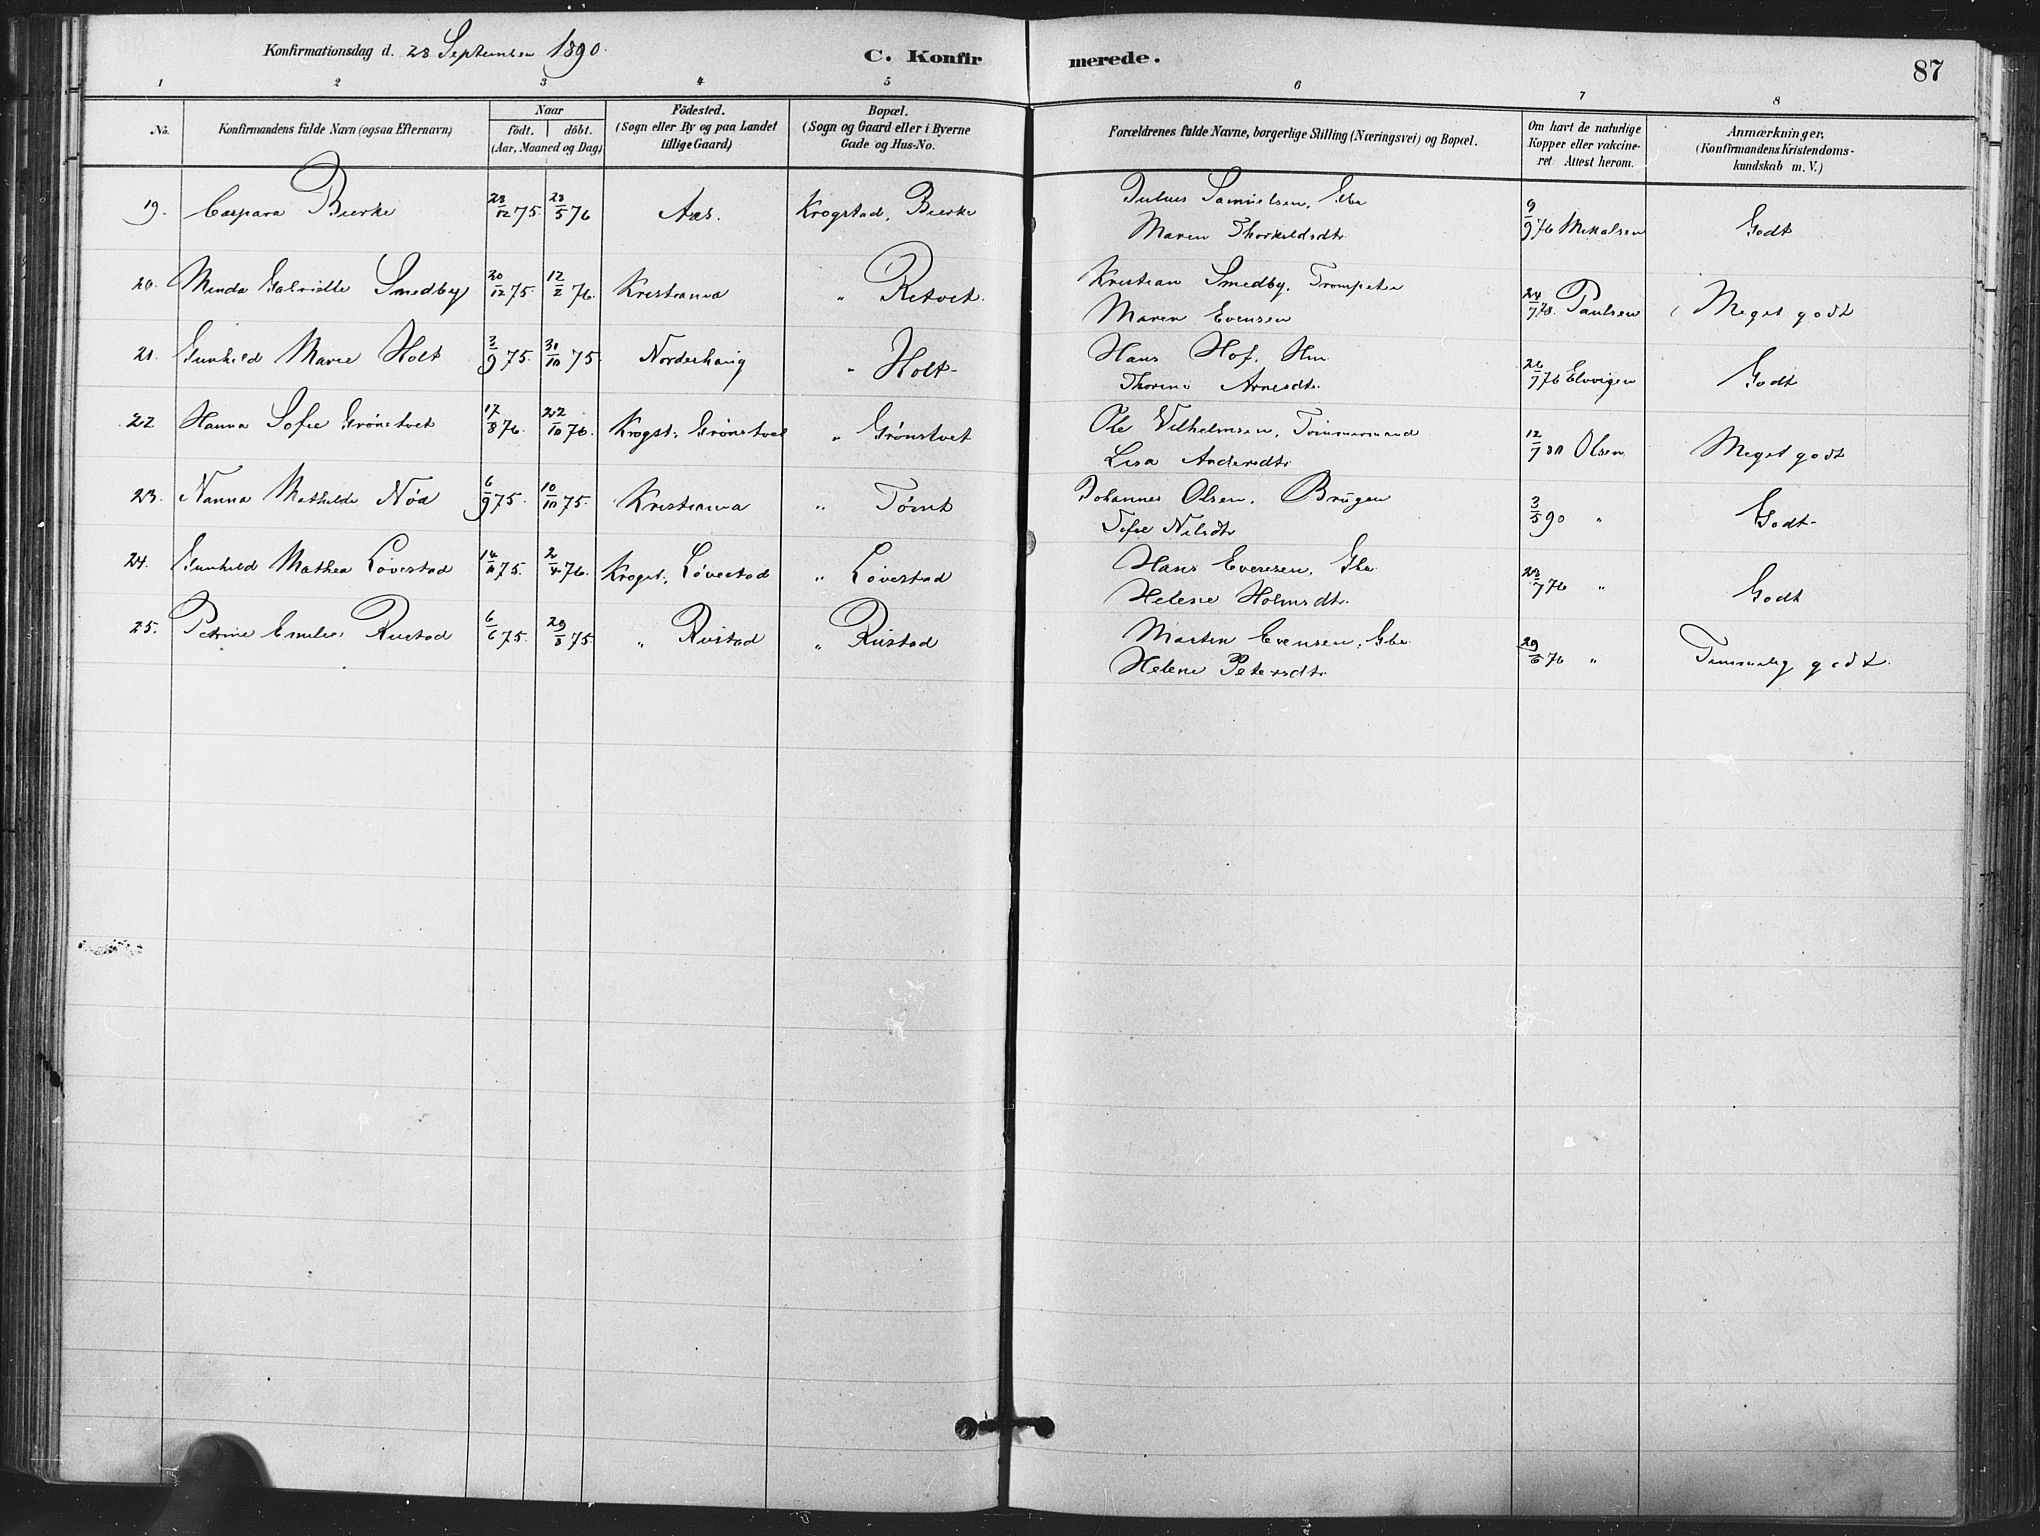 Konfirmationsdag d. 28 September 1890.
C. Konfir merede.
87
1 2 3 4 5 6 7 8
No. Konfirmandens fulde Navn (ogsaa Efternavn)
Naar
födt. | döbt.
(Aar, Maaned og Dag)
Födested.
(Sogn eller By og paa Landet
tillige Gaard)
Bopæl.
(Sogn og Gaard eller i Byerne
Gade og Hus-No.
Forældrenes fulde Navne, borgerlige Stilling (Næringsvei) og Bopæl.
Om havt de naturlige
Kopper eller vakcine-
ret Attest herom.
Anmærkninger.
(Konfirmandens Kristendoms-
kundskab m. V.)
19. Caspara Bierke 28/12 75. 28/5 76 Aas. Krogstad, Bierke Julius Samuelsen, Gbr 9/9 76 Mikalsen Godt
Maren Thorkildsdtr
20. Minda Gabrielle Smedby 20/12 75. 12/2 76. Kristiania " Retvet. Kristian Smedby, Trompeter 24/7 78. Paulsen Meget godt
Maren Evensen
21. Gunhild Marie Holt 3/9 75. 31/10 75. Norderhaug " Holt- Hans Hof. Hm 26/7 76 Elvigen Godt
Thorine Arnesdtr.
22 Hanna Sofie Grønstvet 17/8 76. 22/10 76. Krogst. Grønstvet " Grønstvet Ole Vilhelmsen, Tømmermand 12/7 80 Olsen Meget godt
Lisa Andersdtr
23. Nanna Mathilde Nød 6/9 75. 10/10 75. Kristiania " Tømt Johannes Olsen, Bruger 3/5 90 " Godt-
Sofie Nilsdtr
24. Gunhild Mathea Løvestad 14/11 75. 2/4 76. Krogst. Løvestad " Løvestad Hans Evensen, Gbr 28/7 76 " Godt
Helene Holmsdtr.
25. Petrine Emilie Rustad 6/6 75. 29/8 75. " Rustad " Rustad Martin Evensen, Gbr 29/6 76 " Temmelig godt.
Helene Petersdtr